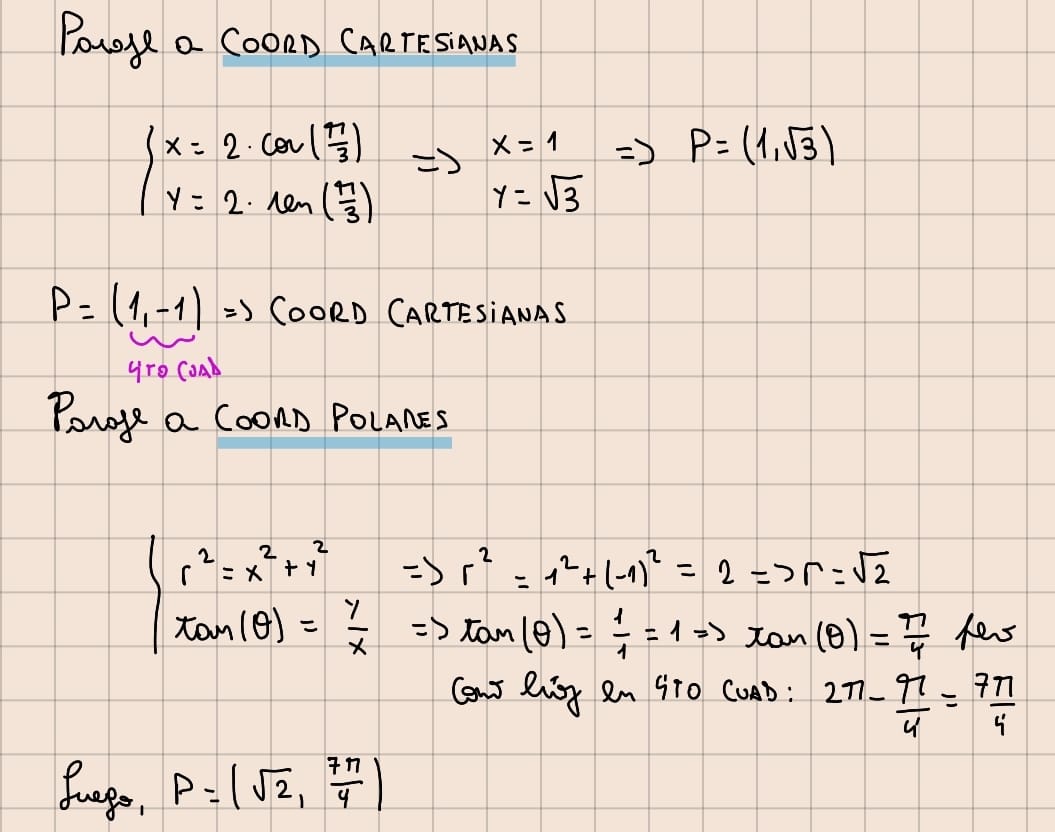 Pasaje a COORD CARTESIANAS
x = 2 · cos(π/3) => x = 1 => P = (1, √3)
y = 2 · sen(π/3) y = √3
P = (1, -1) => COORD CARTESIANAS
4TO CUAD
Pasaje a COORD POLARES
r² = x² + y² => r² = 1² + (-1)² = 2 => r = √2
tan(θ) = y/x => tan(θ) = 1/1 = 1 => tan(θ) = π/4 pero
como en 4TO CUAD: 2π - π/4 = 7π/4
Luego, P = (√2, 7π/4)